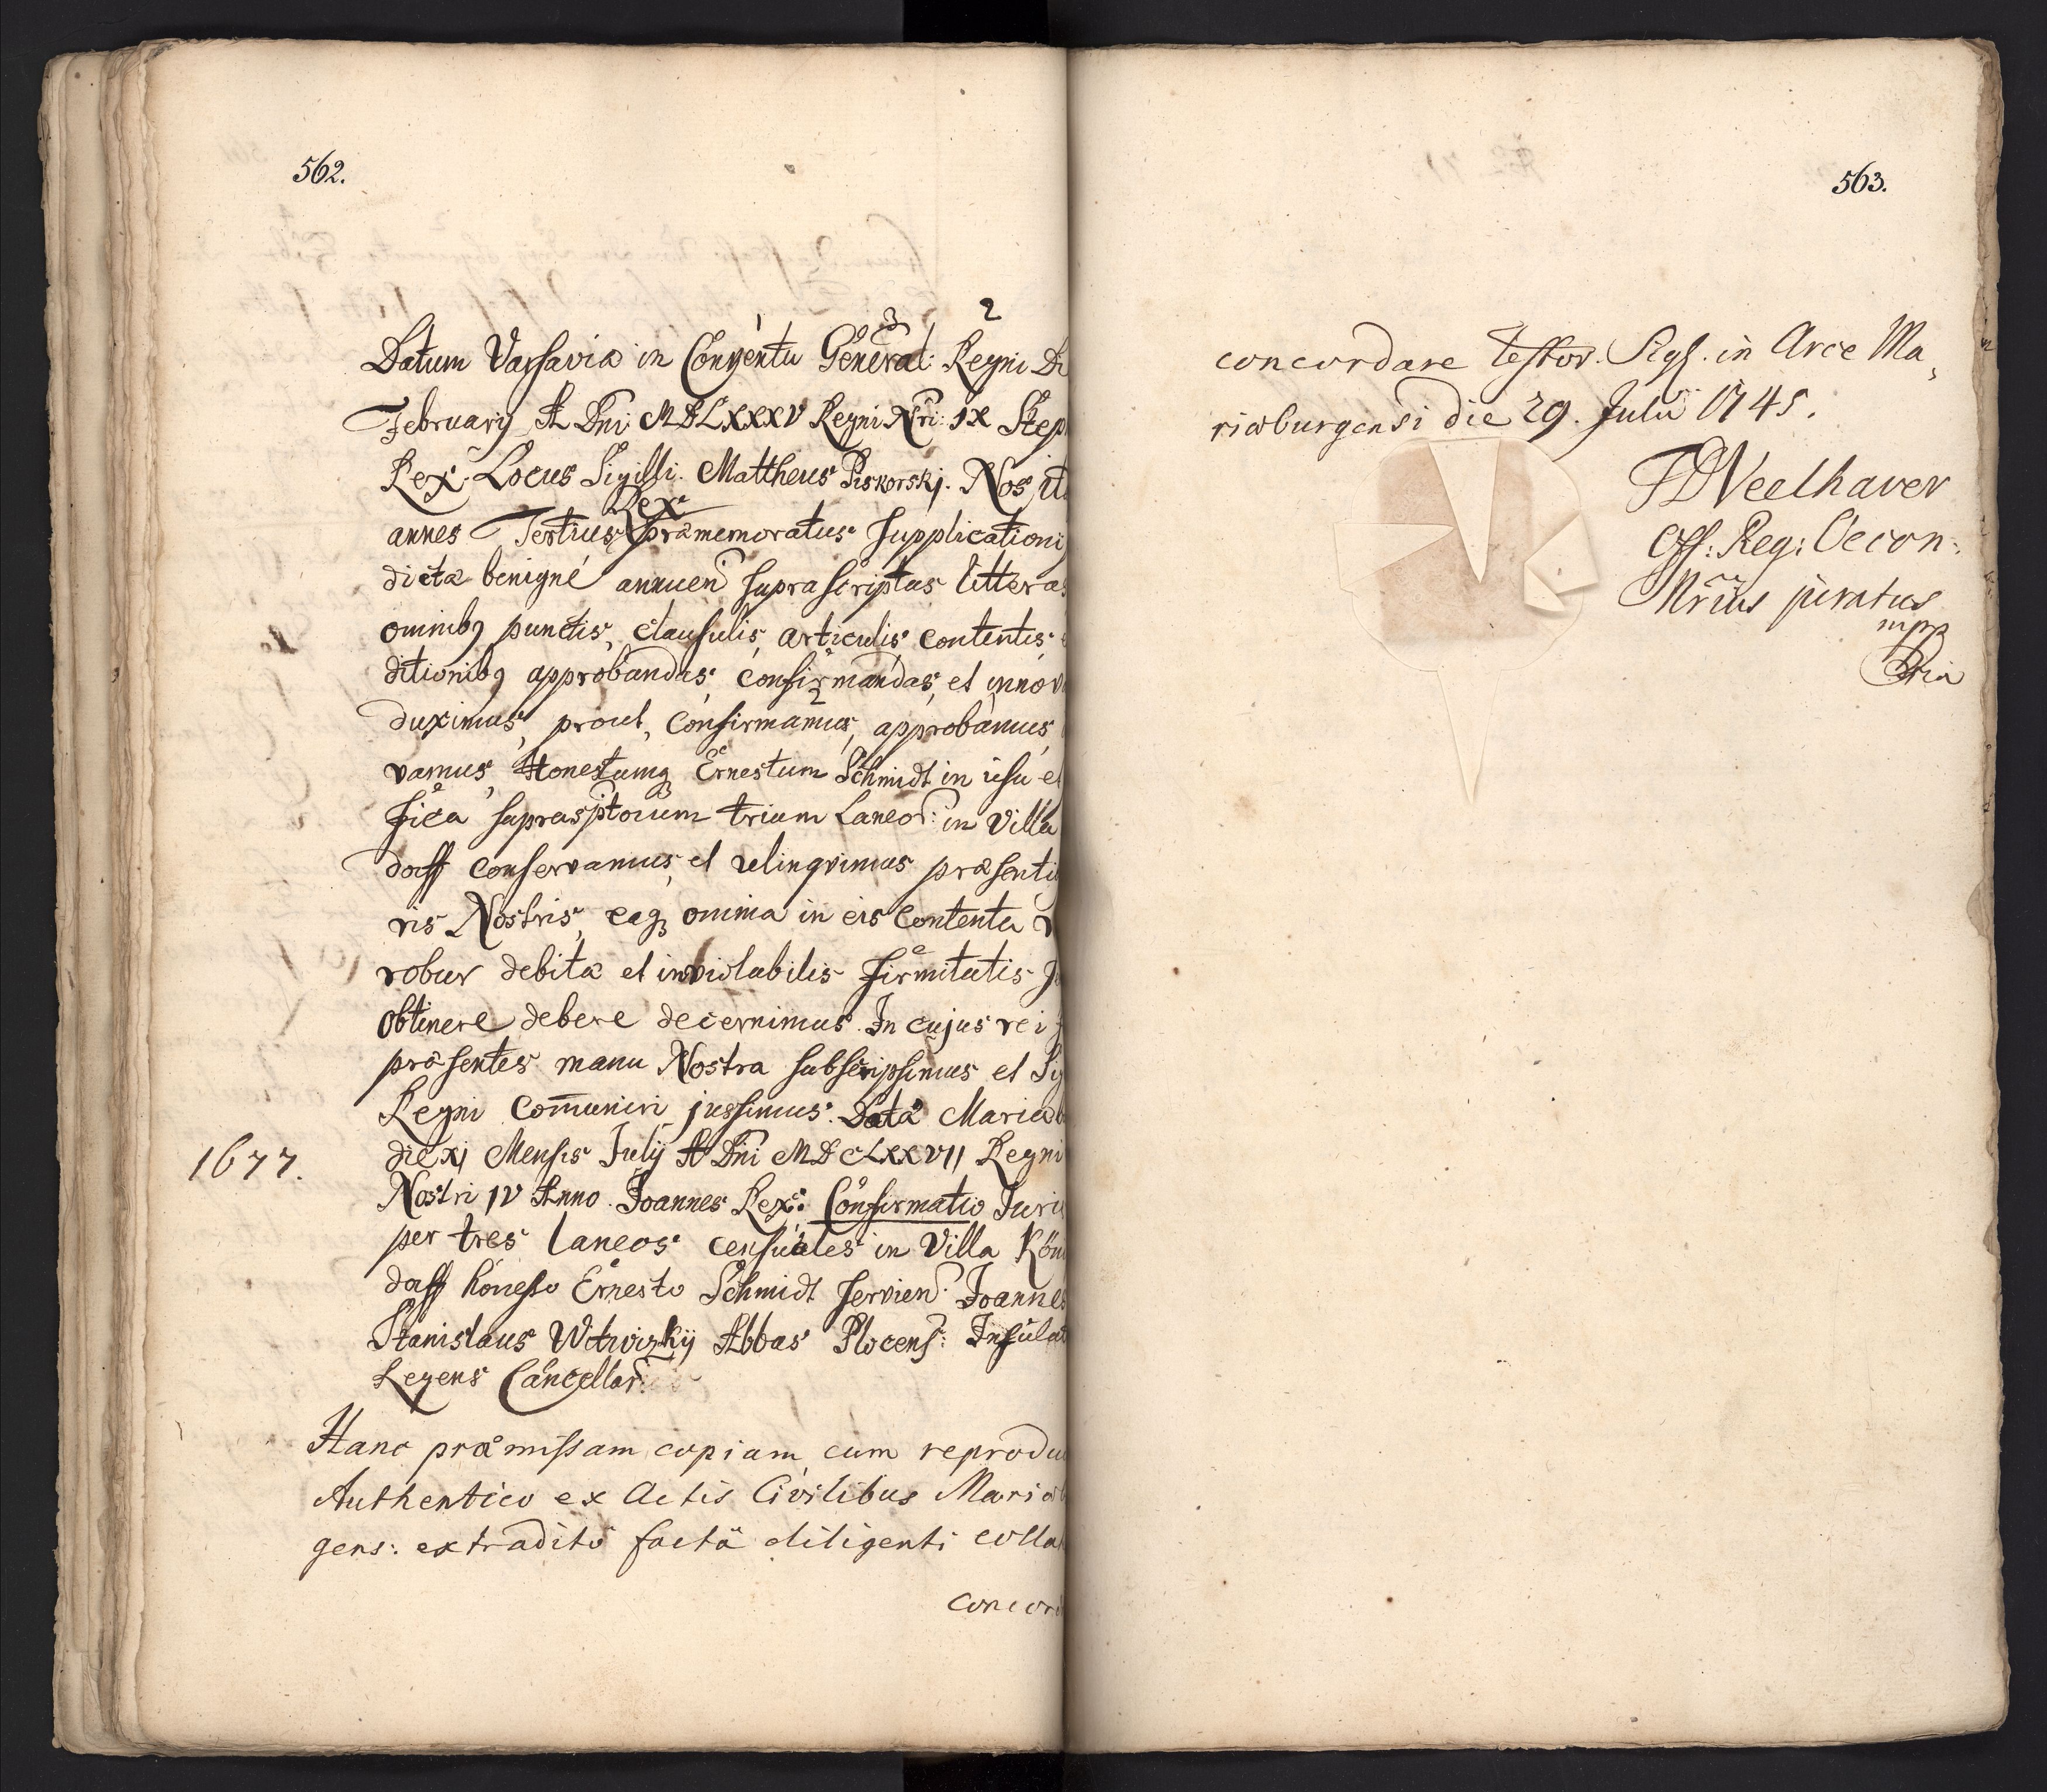 562.
Datum Varsaviæ in Conventu General: Regni Di
1 3 2
February A Dni MDLXXXV Regni Nri: IX Step
Rex. Locus Sigilli. Mattheus Piskorskj. Nos it
Rex
annes Tertius præmemoratus supplicationi
dictæ benignè annuen suprascriptas litteras
omnibq punctis, clausulis, articulis, contentis,
ditionibq approbandas, confirmandas, et innov
2
duximus, prout, confirmamus, approbamus,
vamus, Honestumq Ernestum Schmidt in usu et
fica suprasptorum trium Laneor: in Villa
dorff conservamus, et relinqvimus præsenti
ris Nostris, eaq omnia in eis contenta
robur debitæ et inviolabilis firmitatis
obtinere debere decernimus. In cujus rei
præsentes manu Nostra subscripsimus et Sig
Regni com̄uniri jussimus. Datæ Mariæb
1677.
die XI Mensis July A Dni MDCLXXVII Regni
Nostri IV Anno. Joannes Rex: Confirmatio Juris
per tres laneos censuales in Villa Kön
dorff honesto Ernesto Schmidt servien: Joannes
Stanislaus Witwizkij Abbas Plocens: Insulat
Regens Cancellar:
Hanc præmissam copiam cum reprodu
Authentico ex Actis Civilibus Mariæb
gens: extradito factâ diligenti collat
concord
563.
concordare testor. Sigl. in Arce Ma,
riæburgensi die 29. Julii 1745.
Off: Reg: Oecon:
Mriæs juratus
mpp